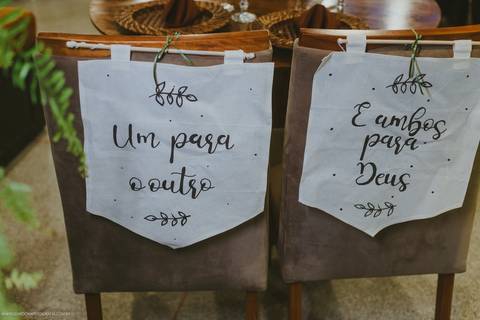 Um para
o outro
E ambos
para
Deus